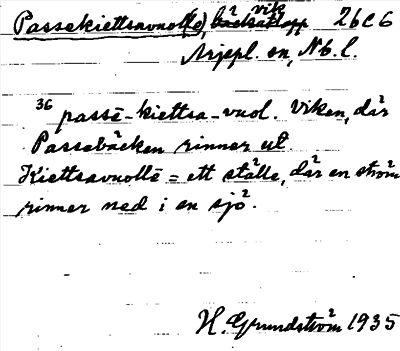 Passekiettsavuolle(e), vik 26C6
Arjepl. sn, Nb. l.
36 passē-kiettsa-vuol. Viken, där
Passebäcken rinner ut.
Kiettsavuollē = ett ställe, där en ström
rinner ned i en sjö.
H. Grundström 1935